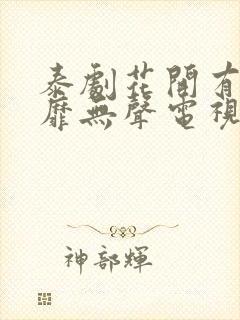 泰劇花開有
靡無聲電視
神部輝